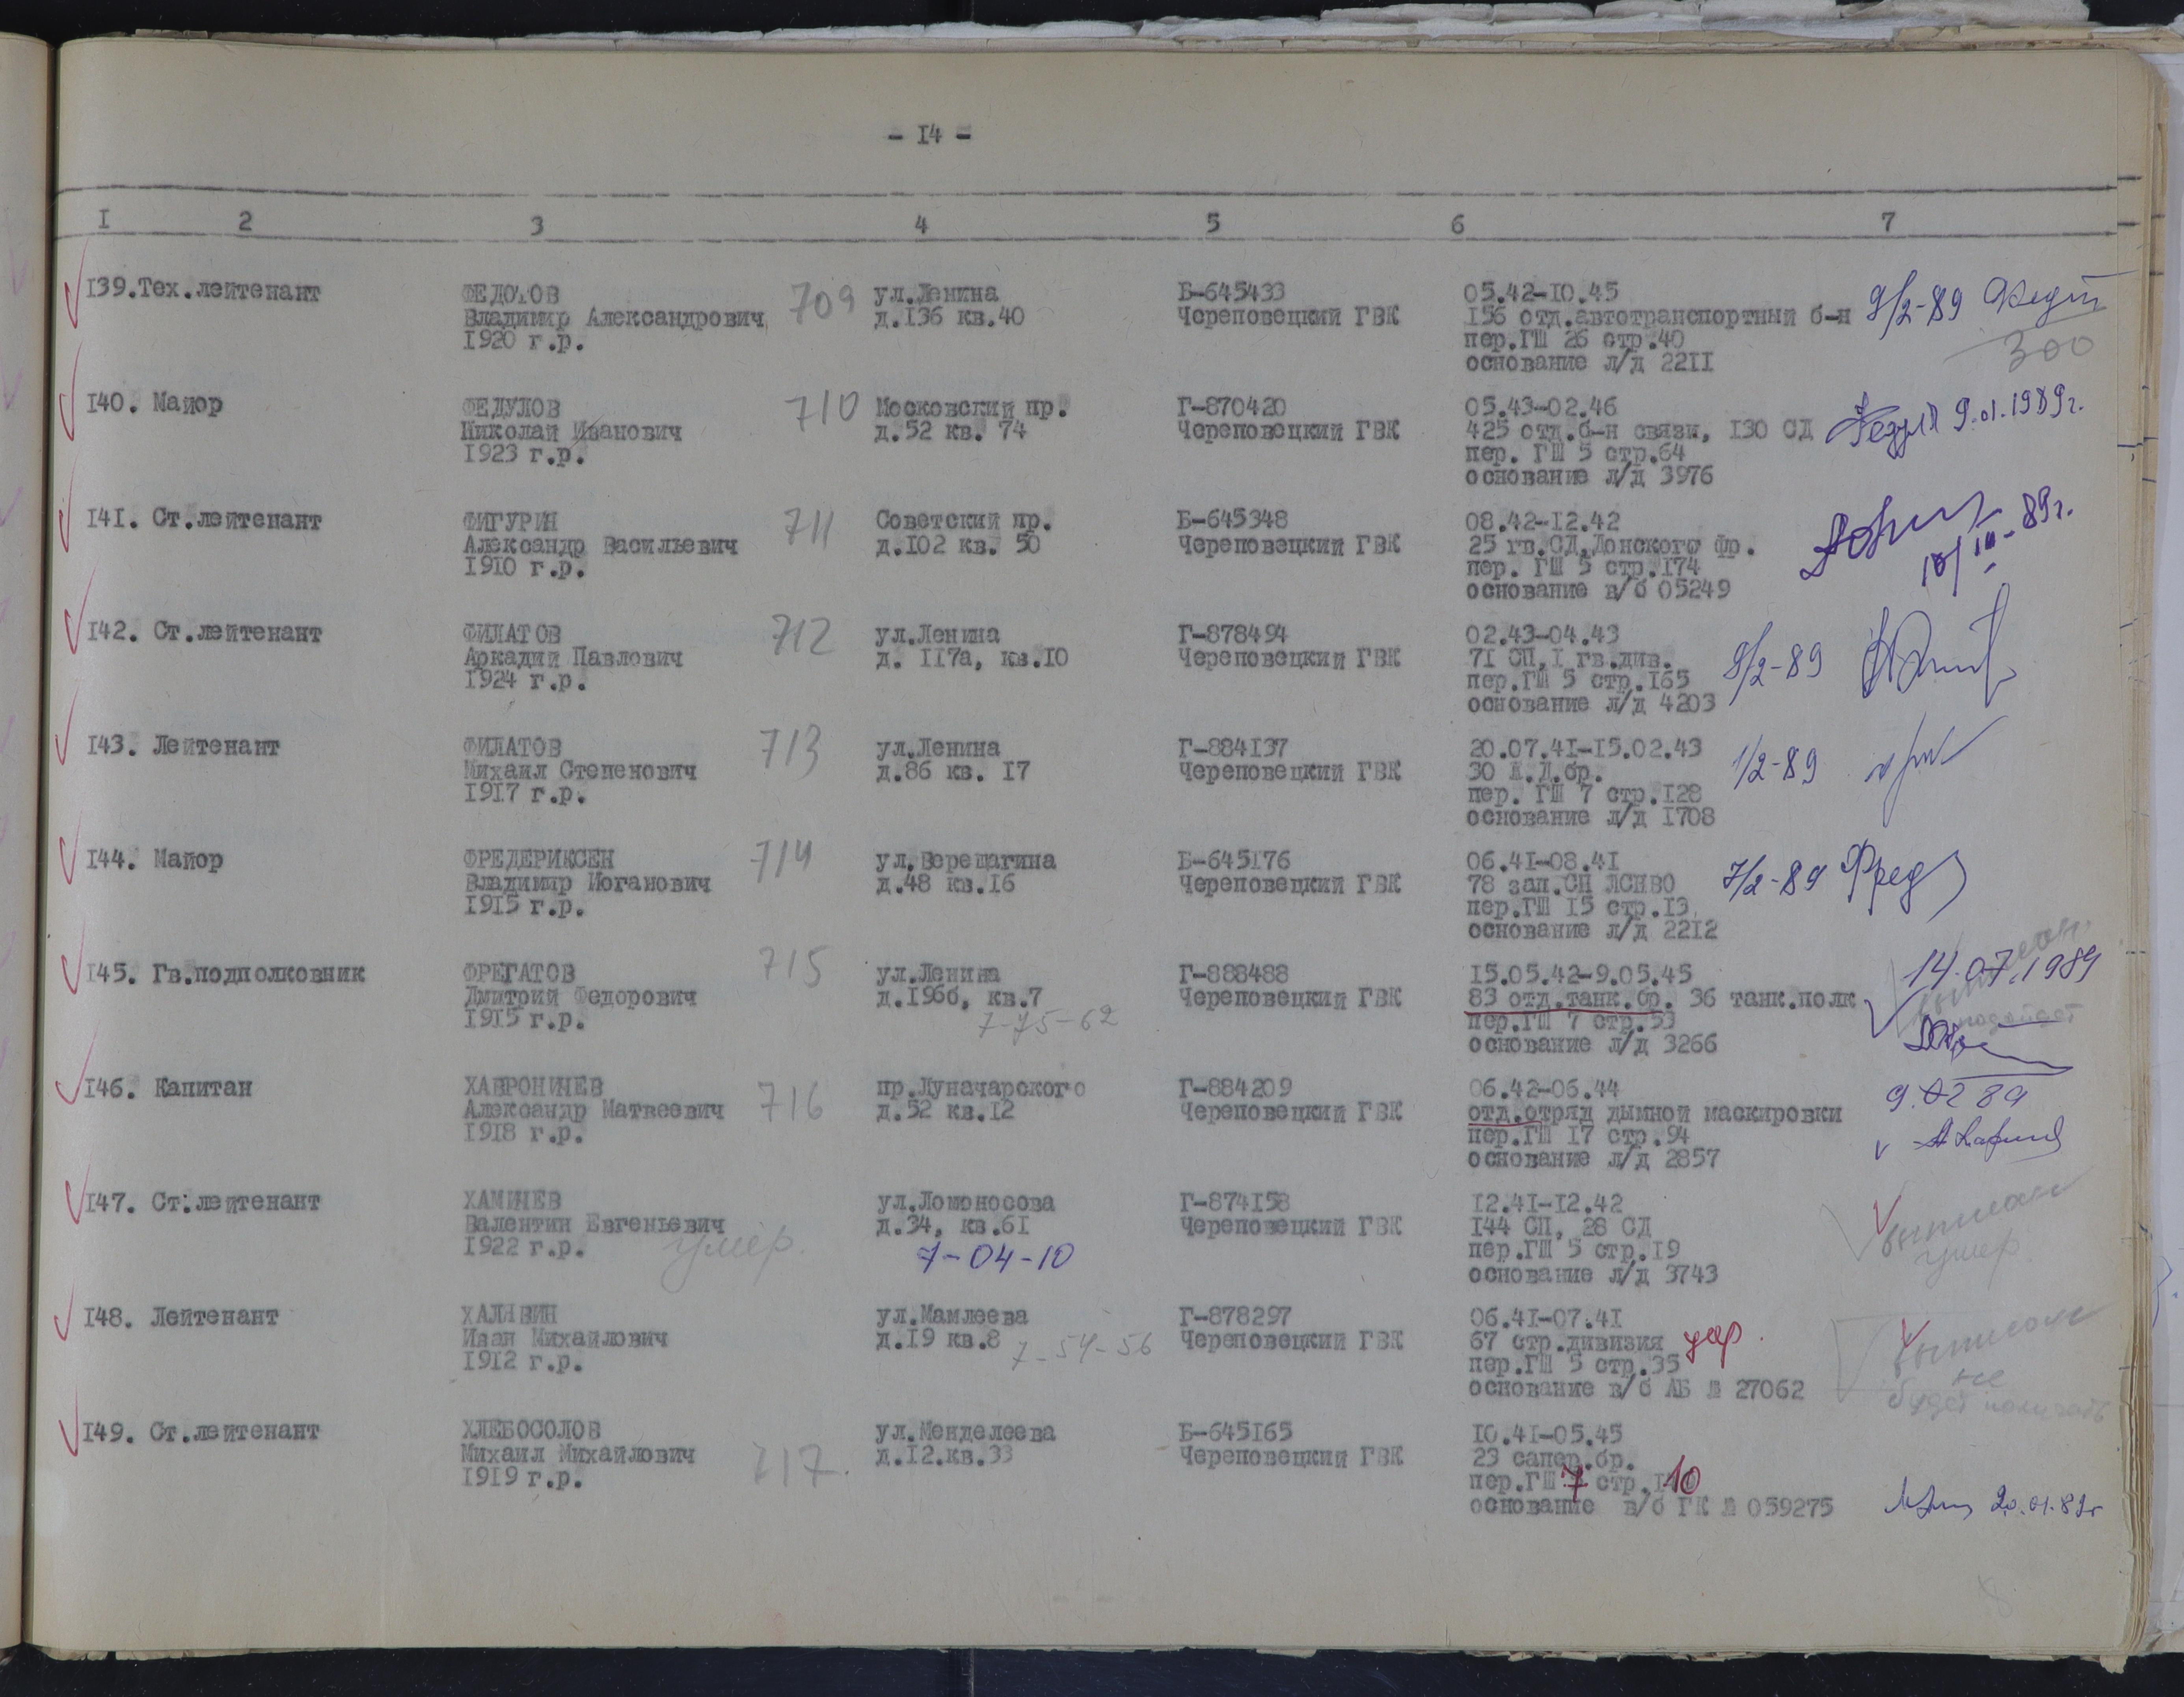 - I4 -
I 2 3 4 5 6 7
I39. Тех.лейтенант ФЕДОТОВ 709 ул.Ленина Б-645433 05.42-I0.45
Владимир Александрович д.I36 кв.40 Череповецкий ГВК I56 отд.автотранспортный б-н 9/2-89
I920 г.р. пер.ГШ 26 стр.40 300
основание л/д 22II
I40. Майор ФЕДУЛОВ 710 Московский пр. Г-870420 05.43-02.46
Николай Иванович д.52 кв. 74 Череповецкий ГВК 425 отд.б-н связи, I30 СД 9.01.1989г.
I923 г.р. пер. ГШ 5 стр.64
основание л/д 3976
I4I. Ст.лейтенант ФИГУРИН 711 Советский пр. Б-645348 08.42-I2.42
Александр Васильевич д.I02 кв. 50 Череповецкий ГВК 25 гв.СД,Донского фр.
I9I0 г.р. пер. ГШ 5 стр.I74
основание в/б 05249
I42. Ст.лейтенант ФИЛАТОВ 712 ул.Ленина Г-878494 02.43-04.43
Аркадий Павлович д. II7а, кв.I0 Череповецкий ГВК 7I СП,I гв.див. 9/2-89
I924 г.р. пер.ГШ 5 стр.I65
основание л/д 4203
I43. Лейтенант ФИЛАТОВ 713 ул.Ленина Г-884I37 20.07.4I-I5.02.43
Михаил Степенович д.86 кв. I7 Череповецкий ГВК 30 Ж.Д.бр. 1/2-89
I9I7 г.р. пер. ГШ 7 стр.I28
основание л/д I708
I44. Майор ФРЕДЕРИКСЕН 714 ул.Верещагина Б-645I76 06.4I-08.4I
Владимир Йоганович д.48 кв.I6 Череповецкий ГВК 78 зап.СП ЛСНВО 7/2-89 Фред
I9I5 г.р. пер.ГШ I5 стр.I3
основание л/д 22I2
I45. Гв.подполковник ФРЕГАТОВ 715 ул.Ленина Г-888488 I5.05.42-9.05.45 14.07.1989
Дмитрий Федорович д.I96б, кв.7 Череповецкий ГВК 83 отд.танк.бр. 36 танк.полк
I9I5 г.р. 7-75-62 пер.ГШ 7 стр.53 подойдет
основание л/д 3266
I46. Капитан ХАВРОНИЧЕВ 716 пр.Луначарского Г-884209 06.42-06.44 9.02 89
Александр Матвеевич д.52 кв.I2 Череповецкий ГВК отд.отряд дымной маскировки
I9I8 г.р. пер.ГШ I7 стр.94
основание л/д 2857
I47. Ст.лейтенант ХАМИЧЕВ ул.Ломоносова Г-874I58 I2.4I-I2.42
Валентин Евгеньевич д.34, кв.6I Череповецкий ГВК I44 СП, 28 СД выписан
I922 г.р. умер. 7-04-10 пер.ГШ 5 стр.I9 умер
основание л/д 3743
I48. Лейтенант ХАЛЯВИН ул.Мамлеева Г-878297 06.4I-07.4I
Иван Михайлович д.I9 кв.8 7-54-56 Череповецкий ГВК 67 стр.дивизия выписан
I9I2 г.р. пер.ГШ 5 стр.35 не
основание в/б АБ № 27062 будет получать
I49. Ст.лейтенант ХЛЕБОСОЛОВ ул.Менделеева Б-645I65 I0.4I-05.45
Михаил Михайлович 717. д.I2.кв.33 Череповецкий ГВК 23 сапер.бр.
I9I9 г.р. пер.ГШ 7 стр.I10
основание в/б ГК № 059275 20.01.89г